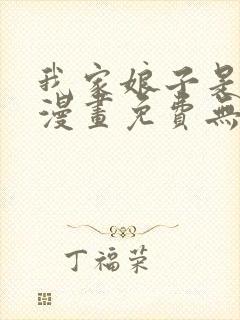 我家娘子是
漫畫免費無
丁福荣